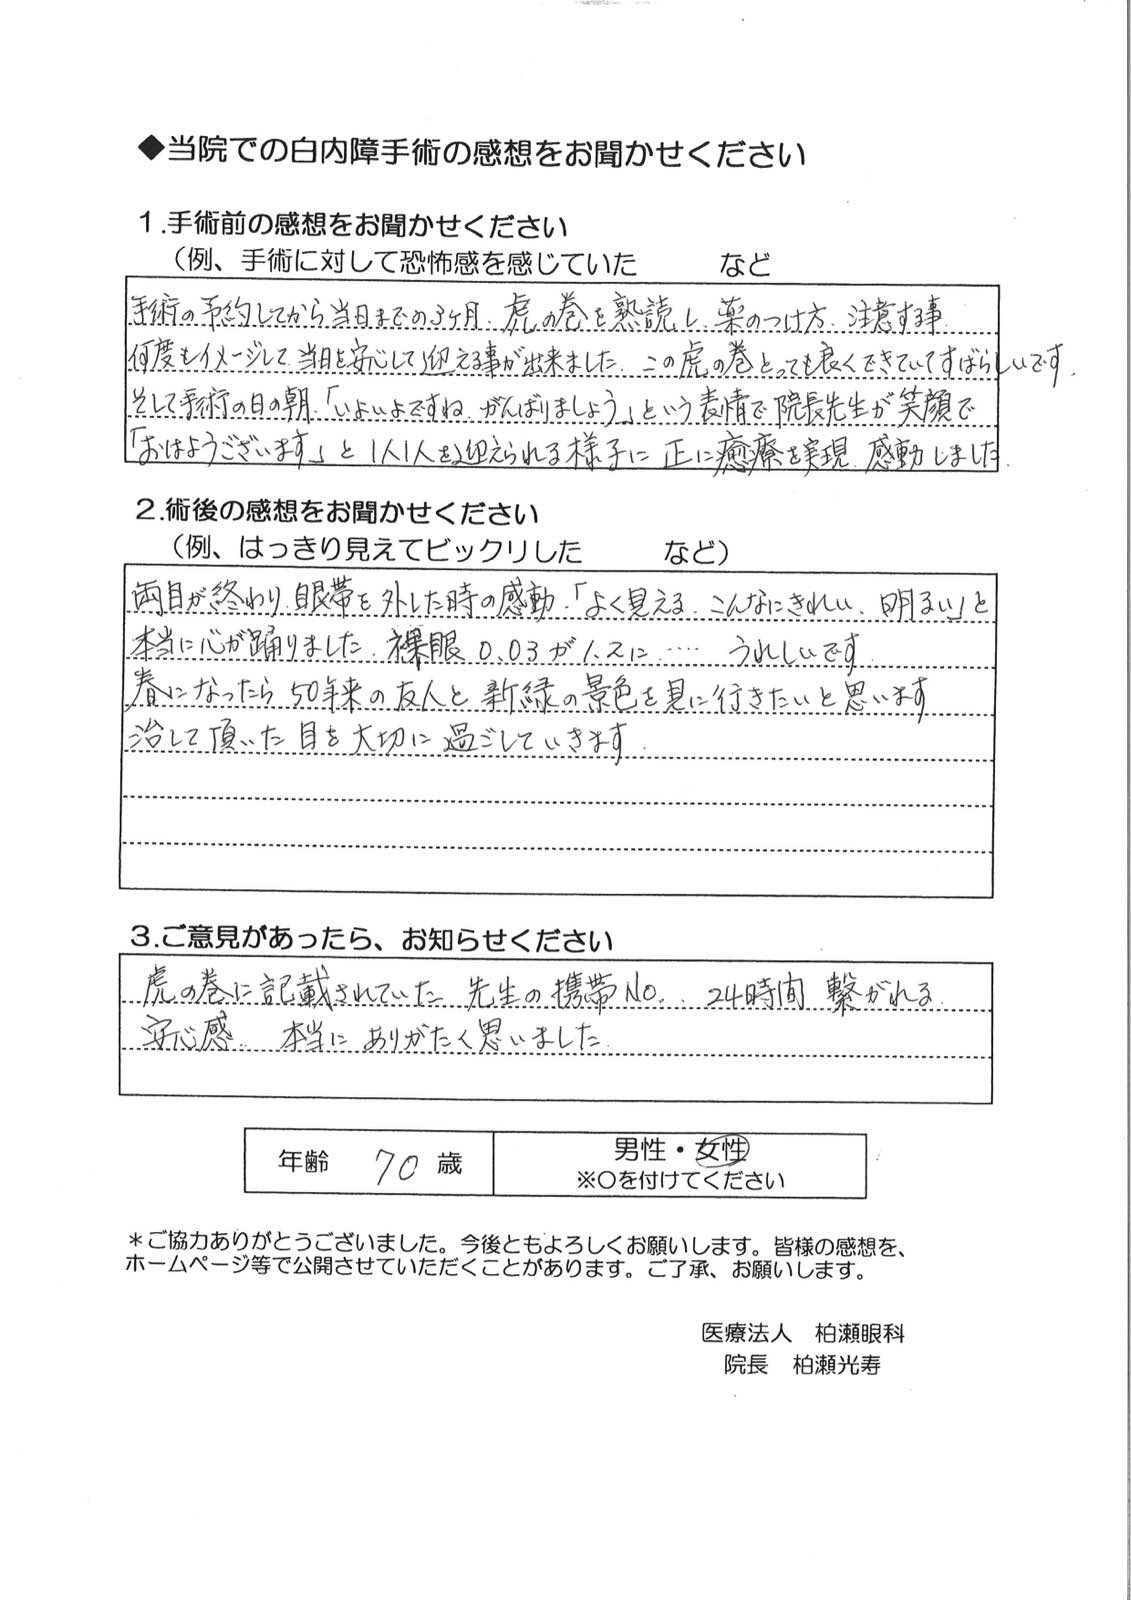 ◆当院での白内障手術の感想をお聞かせください
1.手術前の感想をお聞かせください
(例、手術に対して恐怖感を感じていた　　　など
手術の予約してから当日までの3ヶ月、虎の巻を熟読し、薬のつけ方、注意する事、
何度もイメージして、当日を安心して迎える事が出来ました。この虎の巻とっても良くできていてすばらしいです。
そして手術の日の朝、「いよいよですね、がんばりましょう」という表情で院長先生が笑顔で
「おはようございます」と1人1人を迎えられる様子に正に癒療を実現、感動しました。
2.術後の感想をお聞かせください
(例、はっきり見えてビックリした　　　など)
両目が終わり、眼帯を外した時の感動、「よく見える、こんなにきれい、明るい」と
本当に心が踊りました。裸眼0.03が1.2に……　うれしいです。
春になったら50年来の友人と新緑の景色を見に行きたいと思います
治して頂いた目を大切に過ごしていきます。
3.ご意見があったら、お知らせください
虎の巻に記載されていた先生の携帯No.、24時間繋がれる
安心感、本当にありがたく思いました。
年齢　70歳
男性・女性
※○を付けてください
＊ご協力ありがとうございました。今後ともよろしくお願いします。皆様の感想を、
ホームページ等で公開させていただくことがあります。ご了承、お願いします。
医療法人　柏瀬眼科
院長　柏瀬光寿